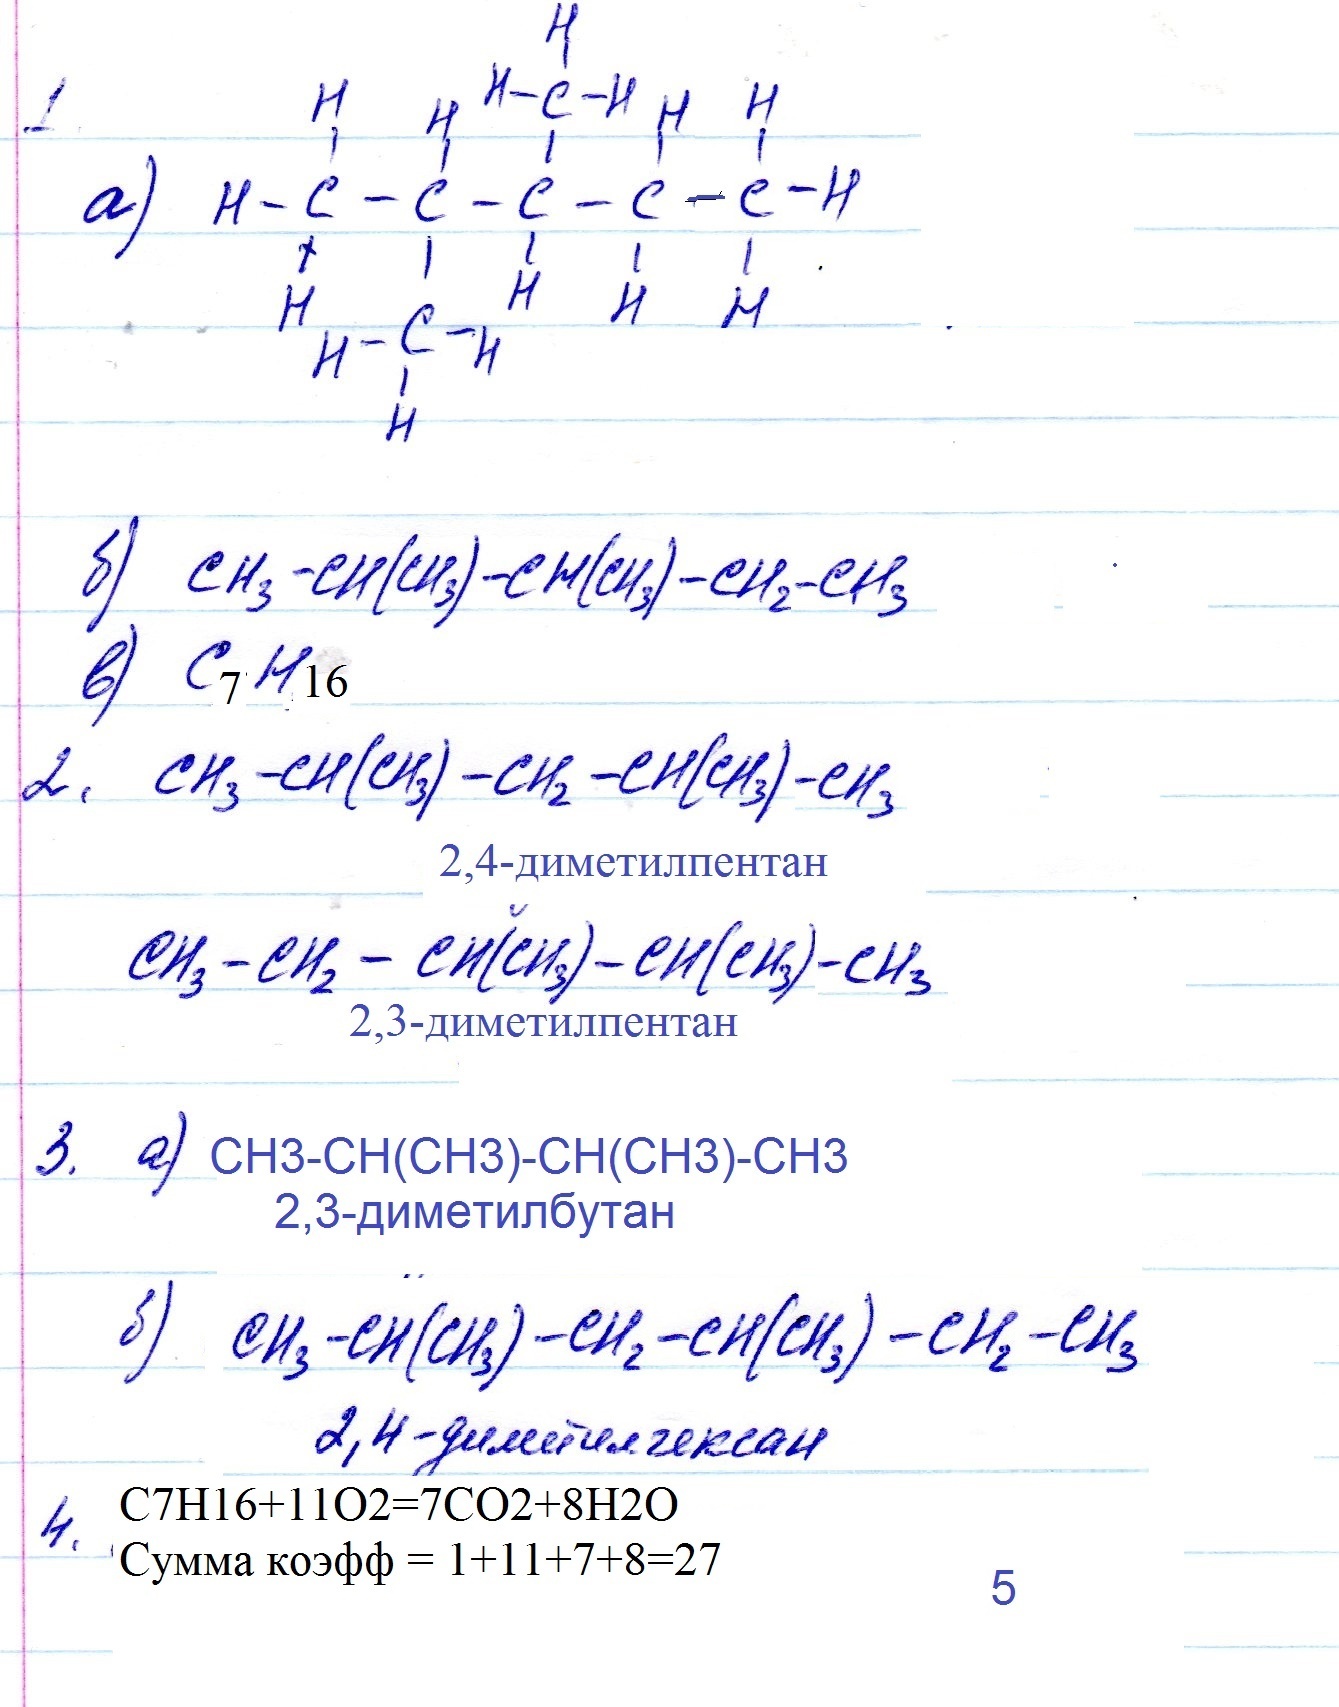 1
H
H–C–H
H H H H
а) H–C–C–C–C–C–H
H H H H
H–C–H
H
б) CH3–CH(CH3)–CH(CH3)–CH2–CH3
в) C7H16
2. CH3–CH(CH3)–CH2–CH(CH3)–CH3
2,4-диметилпентан
CH3–CH2–CH(CH3)–CH(CH3)–CH3
2,3-диметилпентан
3. а) CH3-CH(CH3)-CH(CH3)-CH3
2,3-диметилбутан
б) CH3–CH(CH3)–CH2–CH(CH3)–CH2–CH3
2,4-диметилгексан
4. C7H16+11O2=7CO2+8H2O
Сумма коэфф = 1+11+7+8=27
5